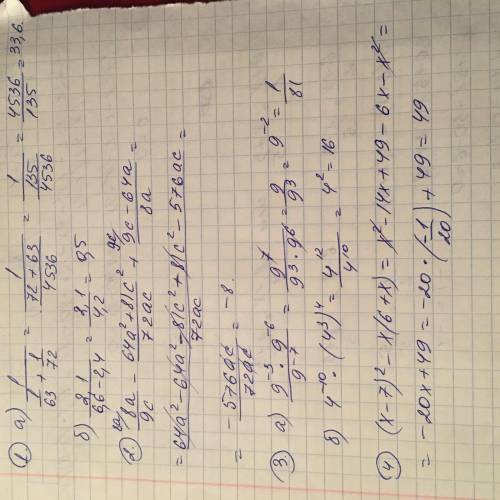 ① а) 1/(1/63 + 1/72) = 1/((72+63)/4536) = 1/(135/4536) = 4536/135 = 33,6.
б) 2,1/(6,6-2,4) = 2,1/4,2 = 0,5
② 8a/9c - (64a²+81c²)/72ac + (9c-64a)/8a =
= (64a²-64a²-81c²+81c²-576ac)/72ac =
= - 576ac/72ac = -8.
③. а) (9⁻³ · 9⁻⁶)/9⁻⁷ = 9⁷/(9³·9⁶) = 9/9³ = 9⁻² = 1/81
б) 4⁻¹⁰ · (4³)⁴ = 4¹²/4¹⁰ = 4² = 16
④ (x-7)² - x(6+x) = x² - 14x + 49 - 6x - x² =
= -20x + 49 = -20 · (-1/20) + 49 = 49